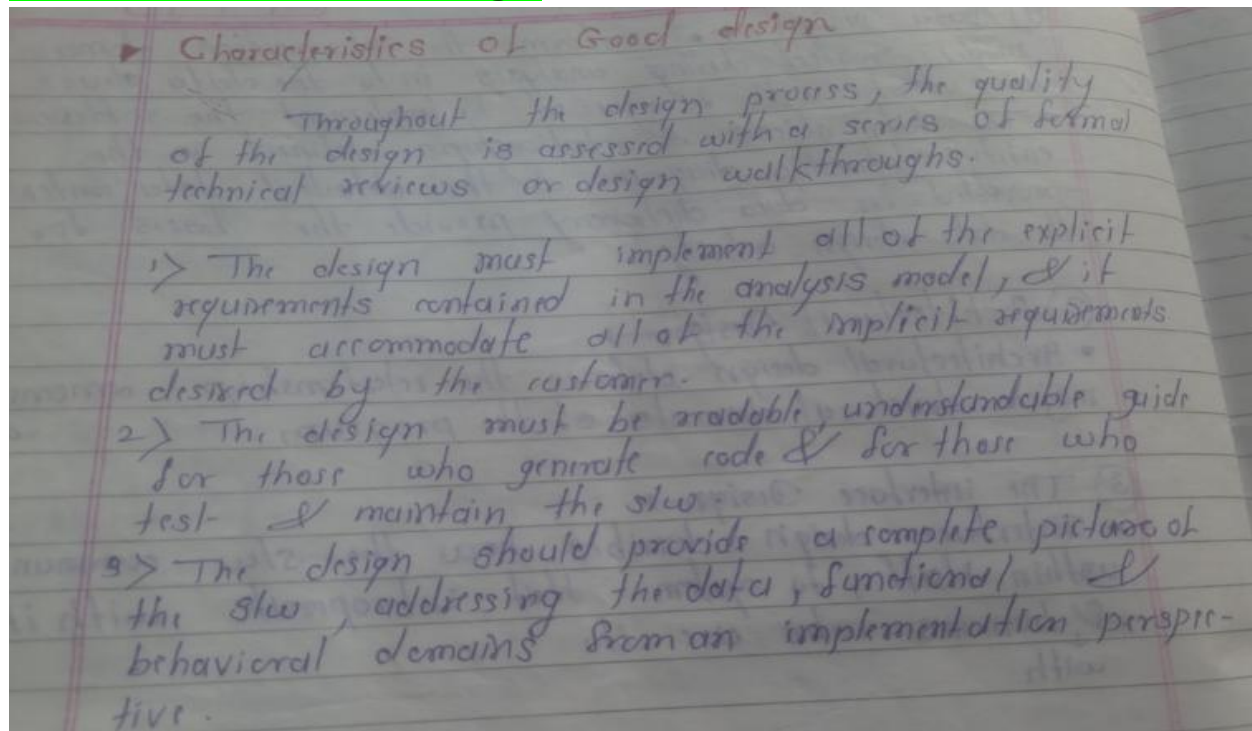 ▸ Characteristics of Good design
Throughout the design process, the quality
of the design is assessed with a series of formal
technical reviews or design walkthroughs.
1> The design must implement all of the explicit
requirements contained in the analysis model, & it
must accommodate all of the implicit requirements
desired by the customer.
2> The design must be readable, understandable guide
for those who generate code & for those who
test & maintain the s/w.
3> The design should provide a complete picture of
the s/w, addressing the data, functional &
behavioral domains from an implementation perspec-
tive.